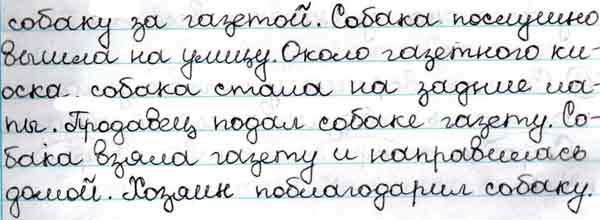 собаку за газетой. Собака послушно
вышла на улицу. Около газетного ки-
оска собака стала на задние ла-
пы. Продавец подал собаке газету. Со-
бака взяла газету и направилась
домой. Хозяин поблагодарил собаку.